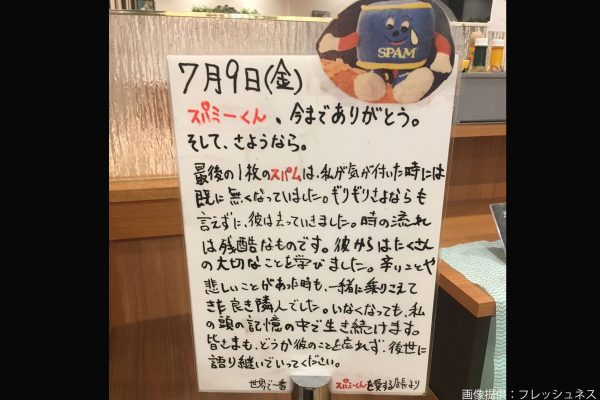 SPAM
7月9日(金)
スパミーくん、今までありがとう。
そして、さようなら。
最後の1枚のスパムは、私が気が付いた時には
既に無くなっていました。ギリギリさよならも
言えずに、彼は去っていきました。時の流れ
は残酷なものです。彼からはたくさん
の大切なことを学びました。辛いことや
悲しいことがあった時も、一緒に乗りこえて
きた良き隣人でした。いなくなっても、私
の頭の記憶の中で生き続けます。
皆さまも、どうか彼のことを忘れず、後世に
語り継いでいってください。
世界で一番 スパミーくんを愛する店長より
画像提供：フレッシュネス